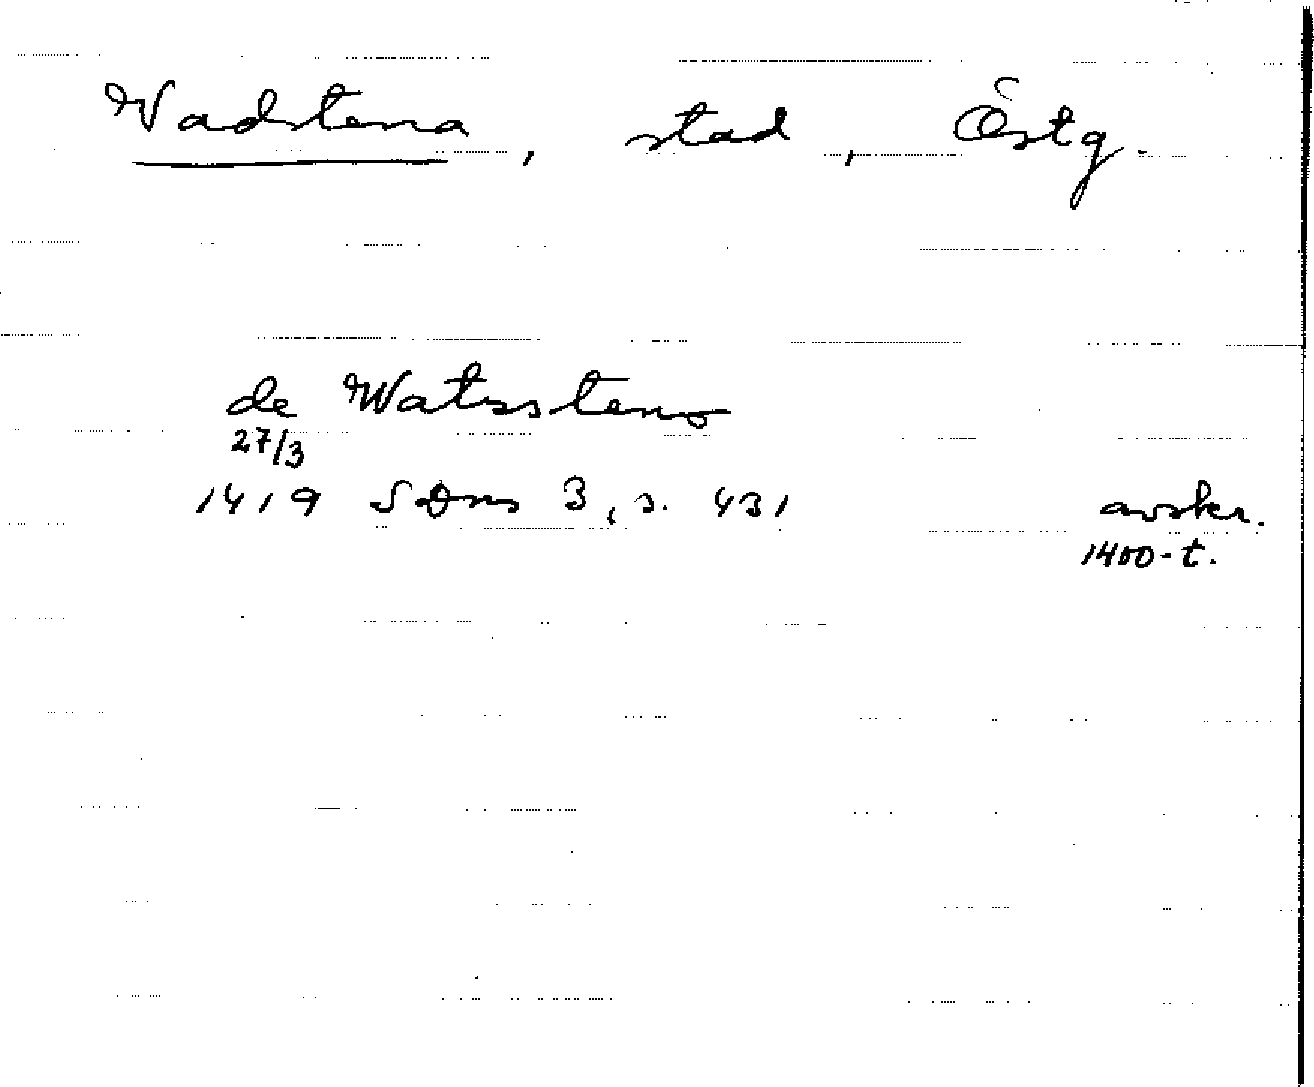 Vadstena, stad, Östg.
de Watzsteno
27/3
1419 SDns 3, s. 431 avskr.
1400-t.